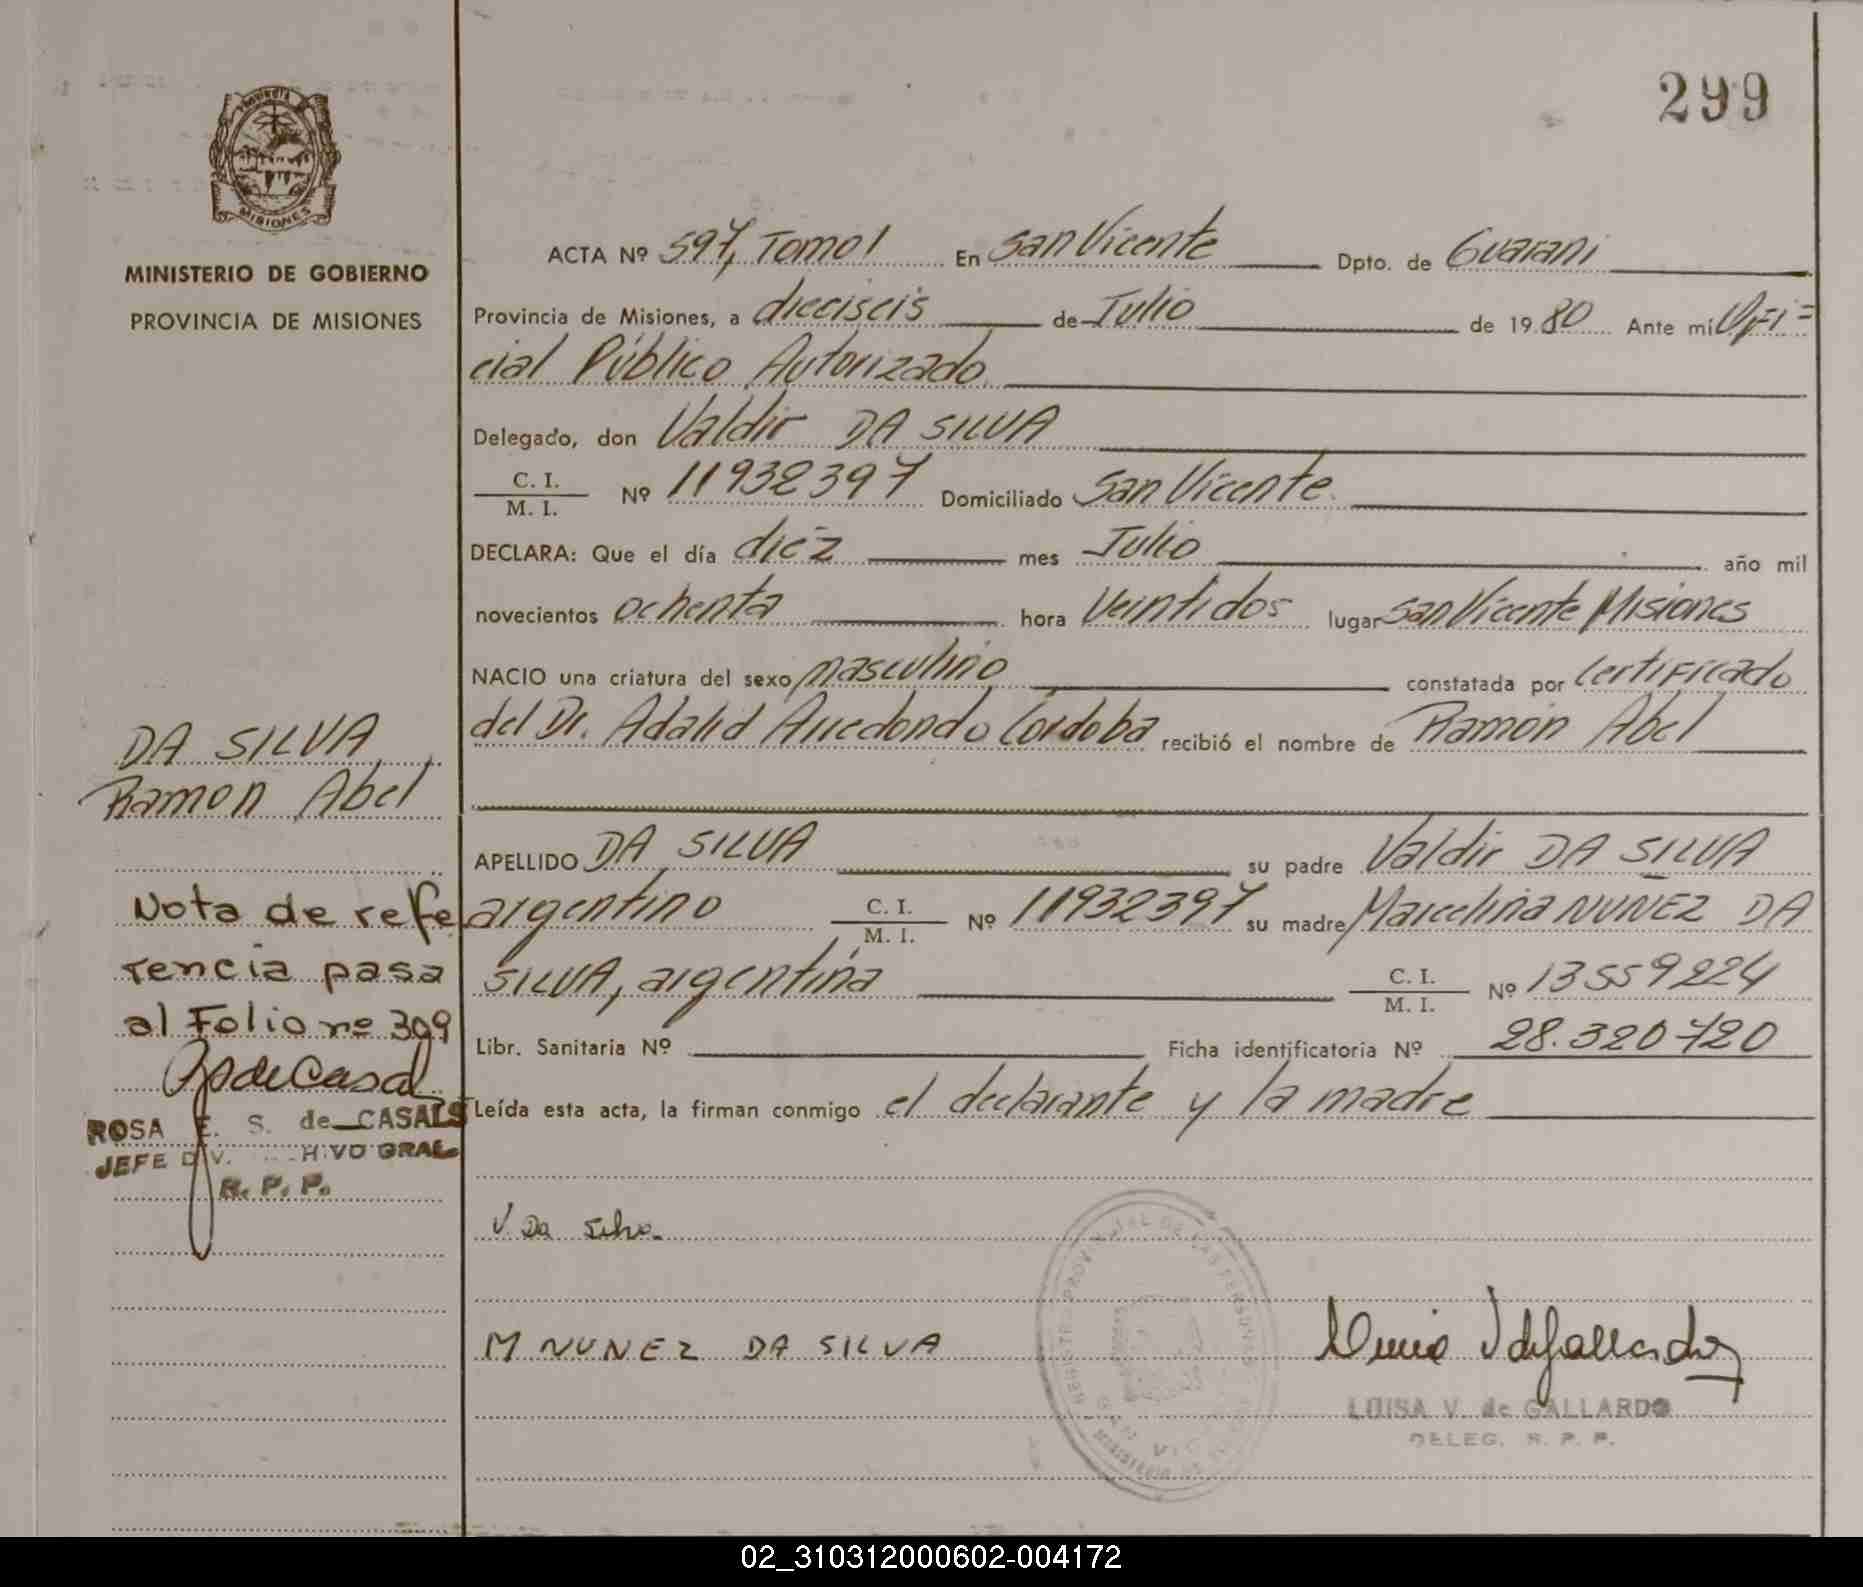 299
PROVINCIA
MISIONES
MINISTERIO DE GOBIERNO
PROVINCIA DE MISIONES
ACTA Nº 597, Tomo I En San Vicente Dpto. de Guarani
Provincia de Misiones, a dieciseis de Julio de 1980 Ante mi Ofi=
cial Público Autorizado
Delegado, don Valdir DA SILVA
C. I.
M. I. Nº 11932397 Domiciliado San Vicente
DECLARA: Que el día diez mes Julio año mil
novecientos ochenta hora Veintidos lugar San Vicente Misiones
NACIO una criatura del sexo masculino constatada por Certificado
del Dr. Adalid Arredondo Cordoba recibió el nombre de Ramon Abel
DA SILVA
Ramon Abel
APELLIDO DA SILVA su padre Valdir DA SILVA
argentino C. I.
M. I. Nº 11932397 su madre Marcelina NUÑEZ DA
SILVA, argentina C. I.
M. I. Nº 13559224
Libr. Sanitaria Nº Ficha identificatoria Nº 28.320720
Leída esta acta, la firman conmigo el declarante y la madre
Nota de refe
rencia pasa
al Folio nº 309
ROSA E. S. de CASALS
JEFE DIV. HIVO GRAL.
R. P. P.
V. Da Silva.
M NUNEZ DA SILVA
LUISA V. de GALLARDO
DELEG. R. P. P.
02_310312000602-004172